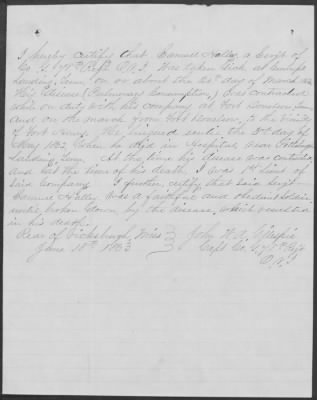 I hereby certify that Samuel Kelley a Sergt of
Co. G. Regt. O.V.I. Was taken Sick at
Landing Tenn. on or about the day of March 62
His disease (Pulmonary Consumption,) was contracted
while on duty with his company at Fort Donelson Tenn
and on the march from Fort Donelson, to the vicinity
of Fort Henry. He lingered until the 3rd day of
May 1862 when he died in Hospital, near Pittsburg
Landing Tenn. At the time his disease was contracted
and at the time of his death, I was 1st Lieut of
Said Company. I further certify that said Sergt
Samuel Kelley was a faithful and obedient Soldier
until broken down, by the disease, which resulted
in his death.
Rear of Vicksburgh, Miss John H. A.
June 18th 1863 Capt Co. G. Regt
O.V.I